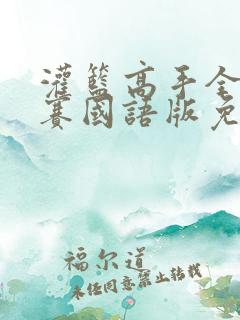 灌籃高手全
賽國語版免
福尔道
未经同意禁止转载